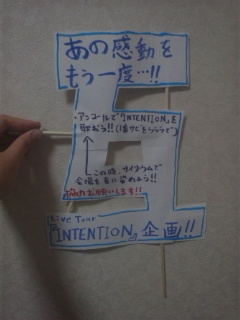 あの感動を
もう一度…!!
・アンコールで「INTENTION」を
歌おう!!(1番サビをらららで)
この時、サイリウムで
会場を青に染めよう!!
協力お願いします!!
Live Tour
『INTENTION』企画!!